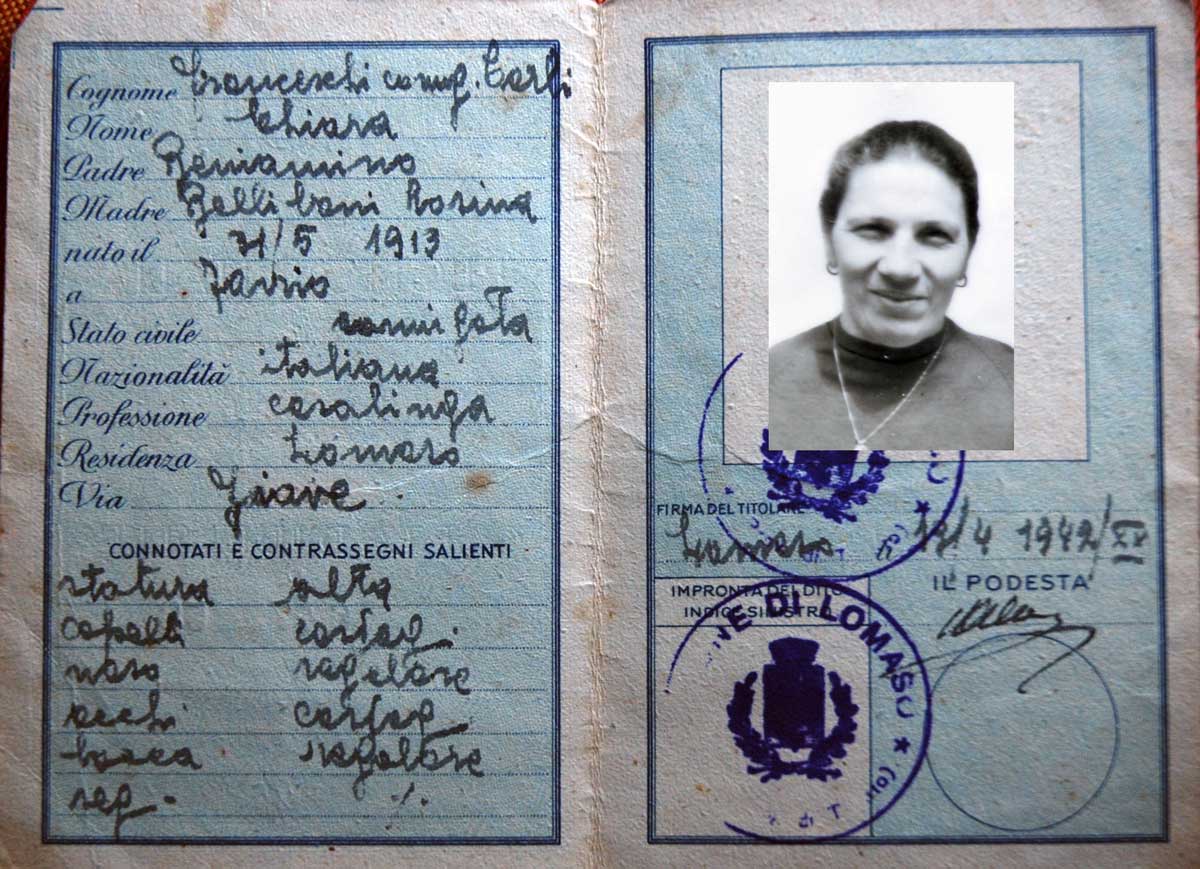 Cognome Franceschi coniug. Carli
Nome Chiara
Padre Beniamino
Madre Bellibani Rosina
nato il 31/5 1913
a
Stato civile coniugata
Nazionalità italiana
Professione casalinga
Residenza Lomaso
Via
CONNOTATI E CONTRASSEGNI SALIENTI
statura alta
capelli castag.
naso regolare
occhi castag.
bocca regolare
seg. /.
FIRMA DEL TITOLARE
Lomaso 4 1942/XX
IMPRONTA DEL DITO
INDICE SINISTRO
IL PODESTA'
NE DI LOMASO ★